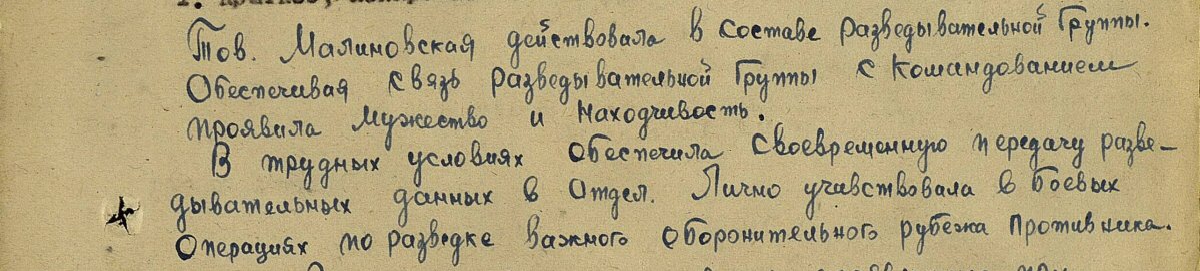 Тов. Малиновская действовала в составе разведывательной группы.
Обеспечивая связь разведывательной группы с командованием
проявила мужество и находчивость.
В трудных условиях обеспечила своевременную передачу разве-
дывательных данных в отдел. Лично учавствовала в боевых
операциях по разведке важного оборонительного рубежа противника.